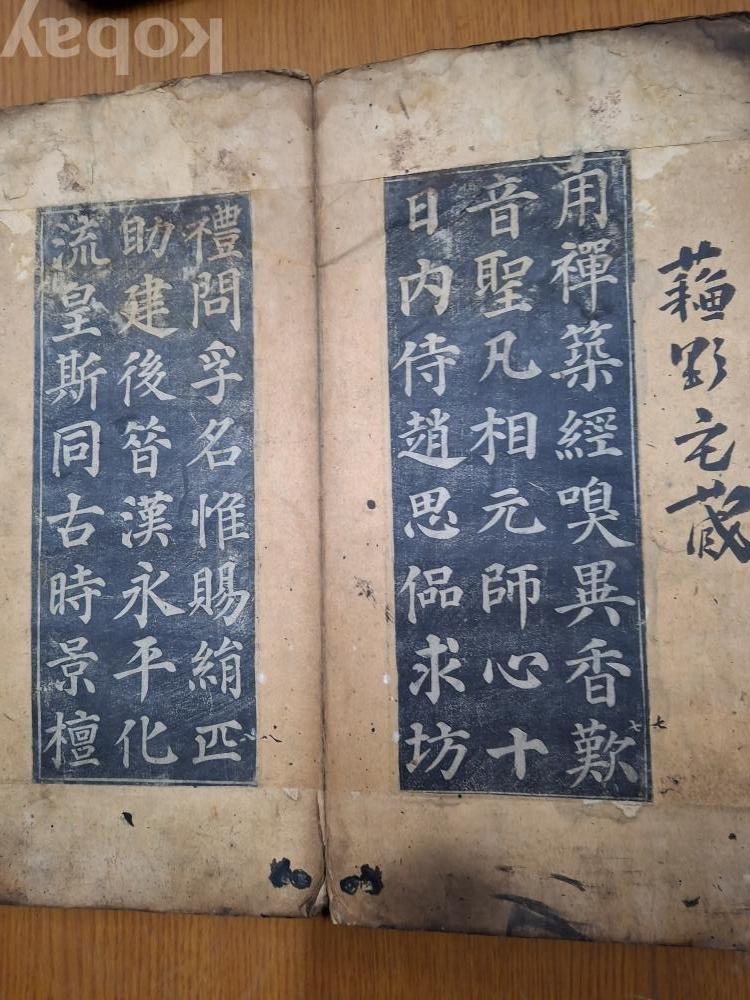 宅蔵
用禪築經嗅異香歎
音聖凡相元師心十
日内侍趙思偘求坊
七七
禮問孚名惟賜絹匹
助建後晉漢永平化
流皇斯同古時景檀
八八
kobay